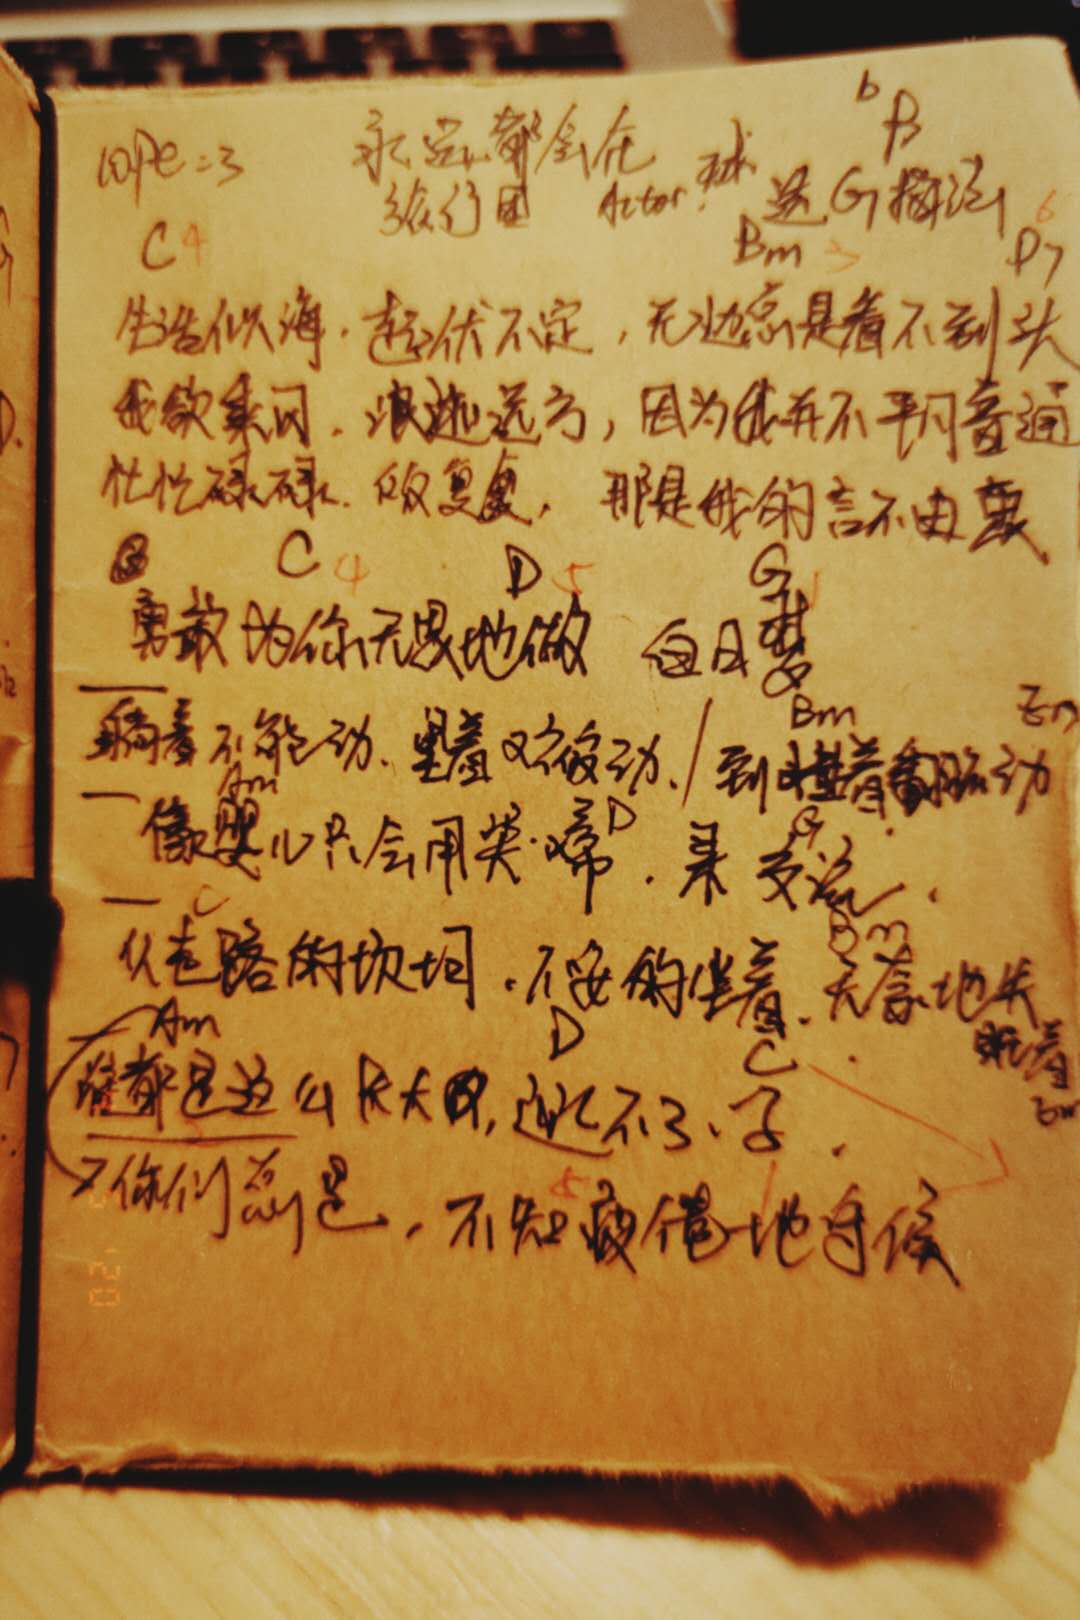 永远都会在 ♭B
cope=3 旅行团 Actor: 球 选G指法
C 4 Bm 3 D7 6
生活似海.起伏不定,无边总是看不到头
我欲乘风.浪迹远方,因为我并不平凡普通
忙忙碌碌.反反复复,那是我的言不由衷
C 4 D 5 G 1
勇敢为你无畏地做 白日梦
Bm Em
躺着不能动.坐着又不被动./到
Am D G
像婴儿只会用哭啼.来交流.
C Bm
从走路的坎坷.不安的坐着.无奈地失
眠着
Am D C Em
谁都是这么长大的,逃不了.子.
你们总是,不知疲倦地守候
5 1